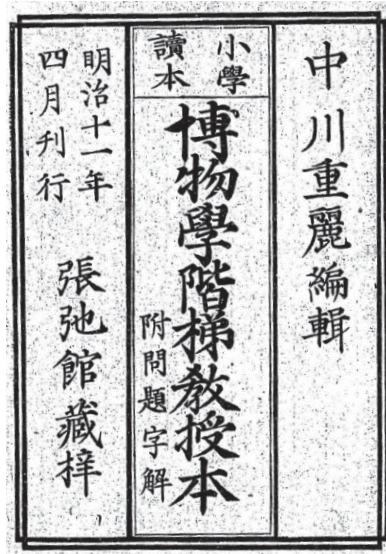 中川重麗編輯
小學
讀本
博物學階梯教授本
附問題字解
明治十一年
四月刊行
張弛館藏梓